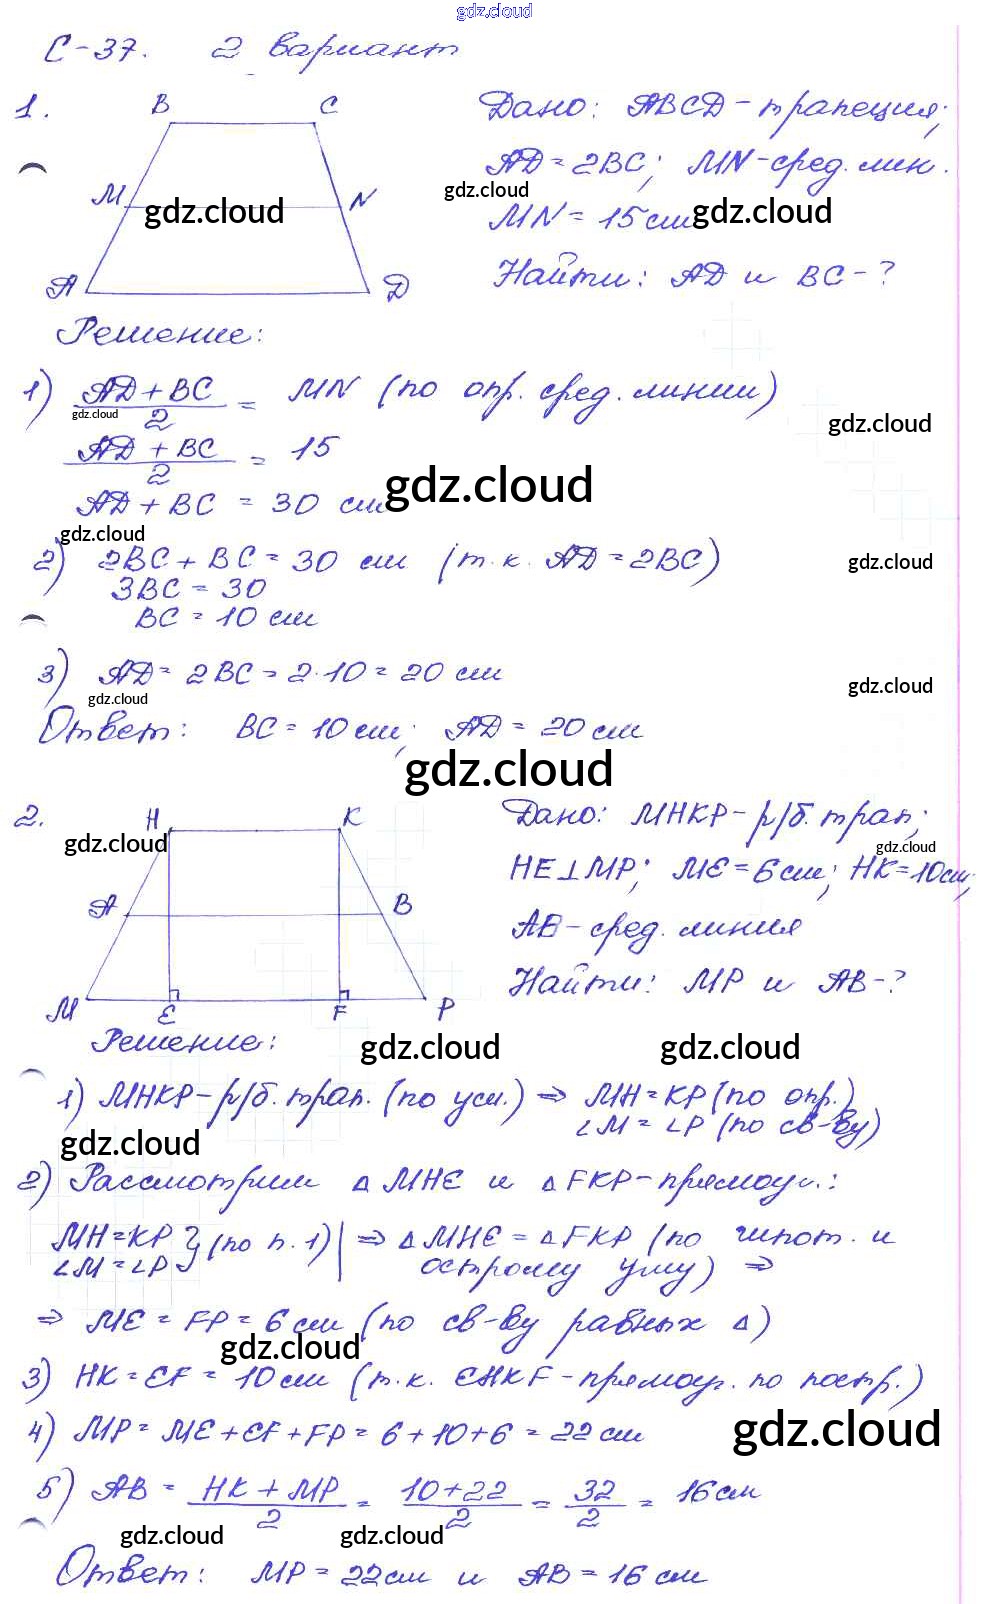 gdz.cloud
С-37. 2 вариант
1.
B C
M N
A D
gdz.cloud
Дано: ABCD - трапеция;
AD = 2BC; MN - сред. лин.
gdz.cloud gdz.cloud
MN = 15 см
Найти: AD и BC - ?
Решение:
1) (AD + BC)/2 = MN (по опр. сред. линии)
gdz.cloud gdz.cloud
(AD + BC)/2 = 15
AD + BC = 30 см
gdz.cloud
gdz.cloud
2) 2BC + BC = 30 см (т.к. AD = 2BC)
gdz.cloud
3BC = 30
BC = 10 см
3) AD = 2BC = 2·10 = 20 см
gdz.cloud gdz.cloud
Ответ: BC = 10 см; AD = 20 см
gdz.cloud
2.
H K
gdz.cloud
A B
M E F P
Дано: MHKP - р/б. трап;
gdz.cloud
HE⊥MP; ME = 6 см; HK = 10 см;
AB - сред. линия
Найти: MP и AB - ?
Решение:
gdz.cloud gdz.cloud
1) MHKP - р/б. трап. (по усл.) ⇒ MH = KP (по опр.)
∠M = ∠P (по св-ву)
gdz.cloud
2) Рассмотрим △MHE и △FKP - прямоуг.:
MH = KP } (по п. 1) | ⇒ △MHE = △FKP (по гипот. и
∠M = ∠P острому углу) ⇒
⇒ ME = FP = 6 см (по св-ву равных △)
gdz.cloud
3) HK = EF = 10 см (т.к. EHKF - прямоуг. по постр.)
4) MP = ME + EF + FP = 6 + 10 + 6 = 22 см
gdz.cloud
5) AB = (HK + MP)/2 = (10 + 22)/2 = 32/2 = 16 см
gdz.cloud gdz.cloud
Ответ: MP = 22 см и AB = 16 см